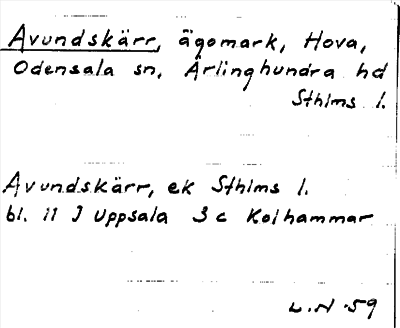 Avundskärr, ägomark, Hova,
Odensala sn, Ärlinghundra hd
Sthlms l.
Avundskärr, ek Sthlms l.
bl. 11 J Uppsala 3 c Kolhammar
L.N. 59